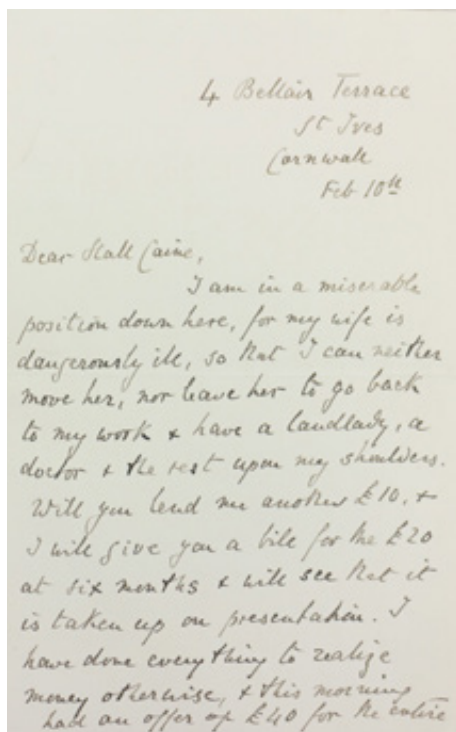 4 Bellair Terrace
St Ives
Cornwall
Feb 10th
Dear Hall Caine,
I am in a miserable
position down here, for my wife is
dangerously ill, so that I can neither
move her, nor leave her to go back
to my work & have a landlady, a
doctor & the rest upon my shoulders.
Will you lend me another £10, &
I will give you a bill for the £20
at six months & will see that it
is taken up on presentation. I
have done everything to realize
money otherwise, & this morning
had an offer of £40 for the entire